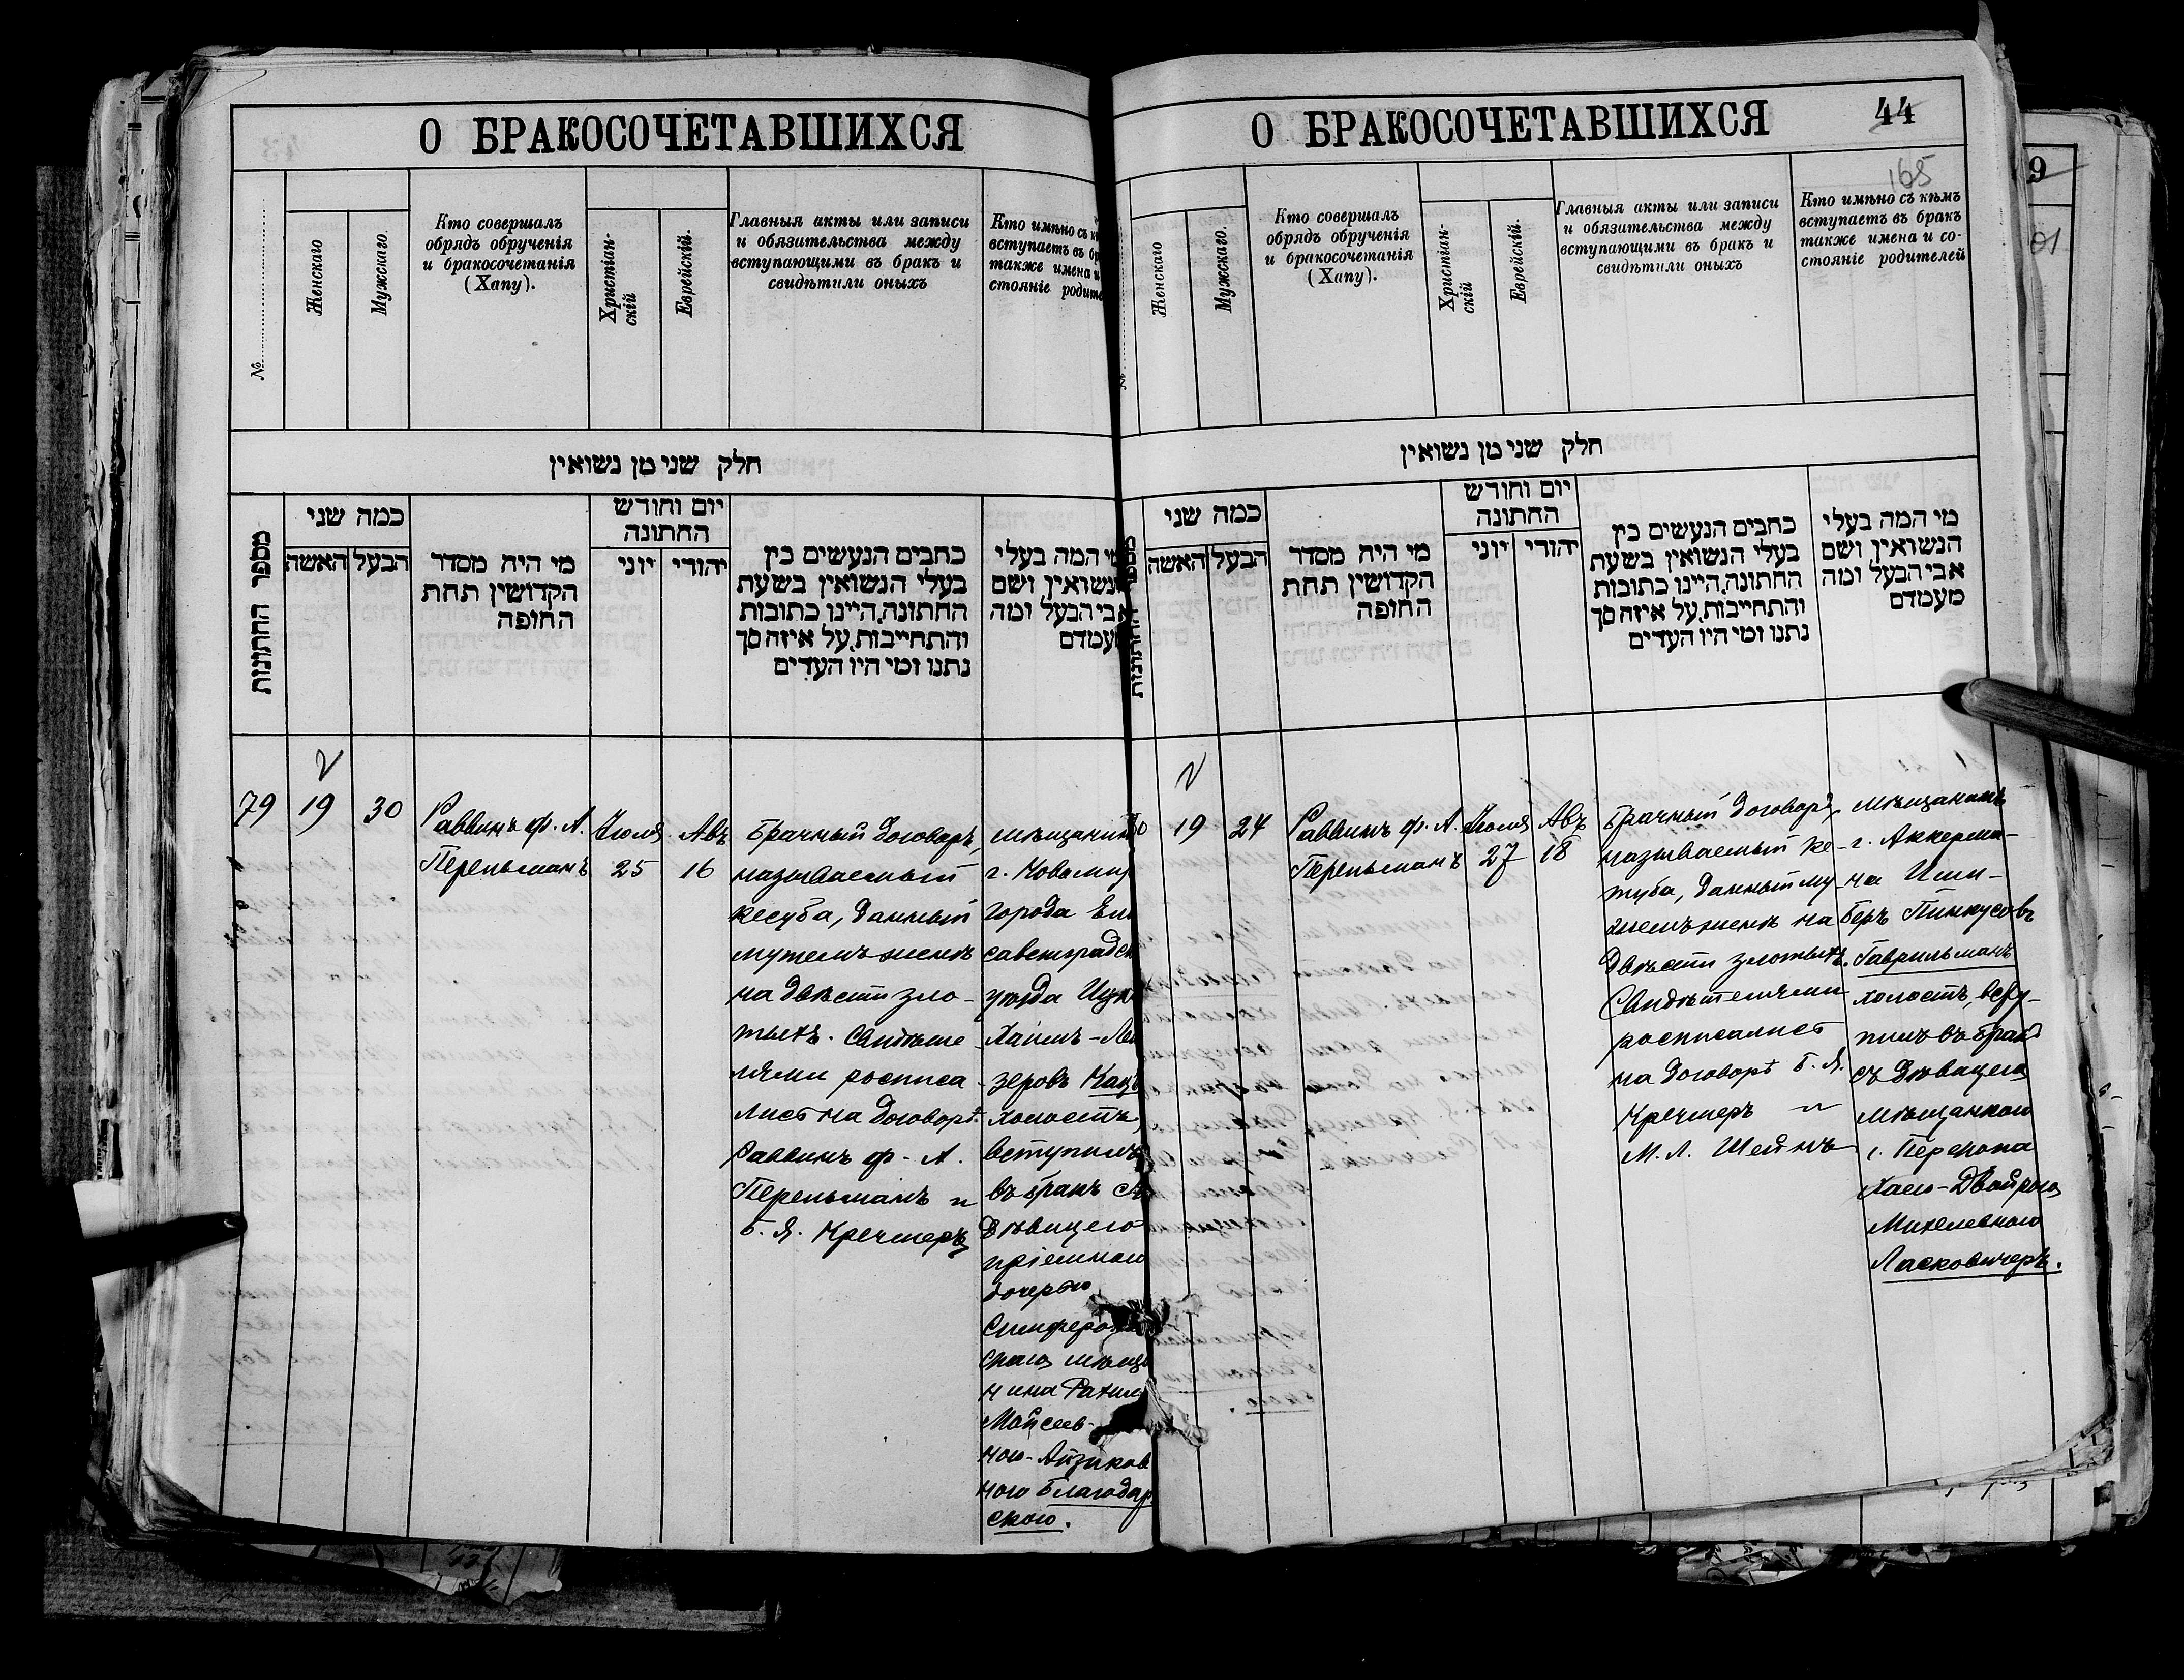 О БРАКОСОЧЕТАВШИХСЯ
№
Женскаго
Мужскаго.
Кто совершалъ
обрядъ обрученія
и бракосочетанія
(Хапу).
Христіан-
скій
Еврейскій.
Главныя акты или записи
и обязательства между
вступающими въ бракъ и
свидѣтили оныхъ
Кто имѣно съ
вступаетъ въ
также имена и
стояніе
חלק שני מן נשואין
מספר החתונות
כמה שני
האשה
הבעל
מי היה מסדר
הקדושין תחת
החופה
יום וחודש
החתונה
יוני
יהודי
כתבים הנעשים בין
בעלי הנשואין בשעת
החתונה, היינו כתובות
והתחייבות, על איזה סך
נתנו ומי היו העדים
מי המה בעלי
הנשואין ושם
אבי הבעל ומה
מעמדם
79
19
30
Раввинъ ф. А.
Перельманъ
Іюля
25
Авъ
16
Брачный договоръ,
называемый
кесуба, данный
мужемъ женѣ
на двѣсти зло-
тыхъ. Свидѣте-
лями росписа-
лись на договорѣ
Раввинъ ф. А.
Перельманъ и
Б. Я. Кречмеръ
мѣщанинъ
г. Новомир
города Ели
саветградск
уѣзда Ицк
Хаимъ-Лей
зеровъ Кацъ
холостъ,
вступилъ
въ бракъ съ
дѣвицею
пріемною
дочерью
Симферопол
скаго мѣща
нина Рахил
Моисеев-
ною-Айзиков
ною Благодар
скою.
О БРАКОСОЧЕТАВШИХСЯ
44
165
№
Женскаго
Мужскаго.
Кто совершалъ
обрядъ обрученія
и бракосочетанія
(Хапу).
Христіан-
скій
Еврейскій.
Главныя акты или записи
и обязательства между
вступающими въ бракъ и
свидѣтили оныхъ
Кто имѣно съ кѣмъ
вступаетъ въ бракъ
также имена и со-
стояніе родителей
חלק שני מן נשואין
כמה שני
האשה
הבעל
מי היה מסדר
הקדושין תחת
החופה
יום וחודש
החתונה
יוני
יהודי
כתבים הנעשים בין
בעלי הנשואין בשעת
החתונה, היינו כתובות
והתחייבות, על איזה סך
נתנו ומי היו העדים
מי המה בעלי
הנשואין ושם
אבי הבעל ומה
מעמדם
19
24
Раввинъ ф. А.
Перельманъ
Іюля
27
Авъ
18
Брачный договоръ,
называемый ке-
туба, данный му-
жемъ женѣ на
двѣсти злотыхъ.
Свидѣтелями
росписались
на договорѣ Б. Я.
Кречмеръ и
М. Л. Шейнъ
мѣщанинъ
г. Аккерма-
на Ицик-
Беръ Пинкусовъ
Гаврильманъ
холостъ, всту-
пилъ въ бракъ
съ дѣвицею
мѣщанкою
г. Перекопа
Хаею-Двойрою
Михелевною
Ласковичеръ.
9
01